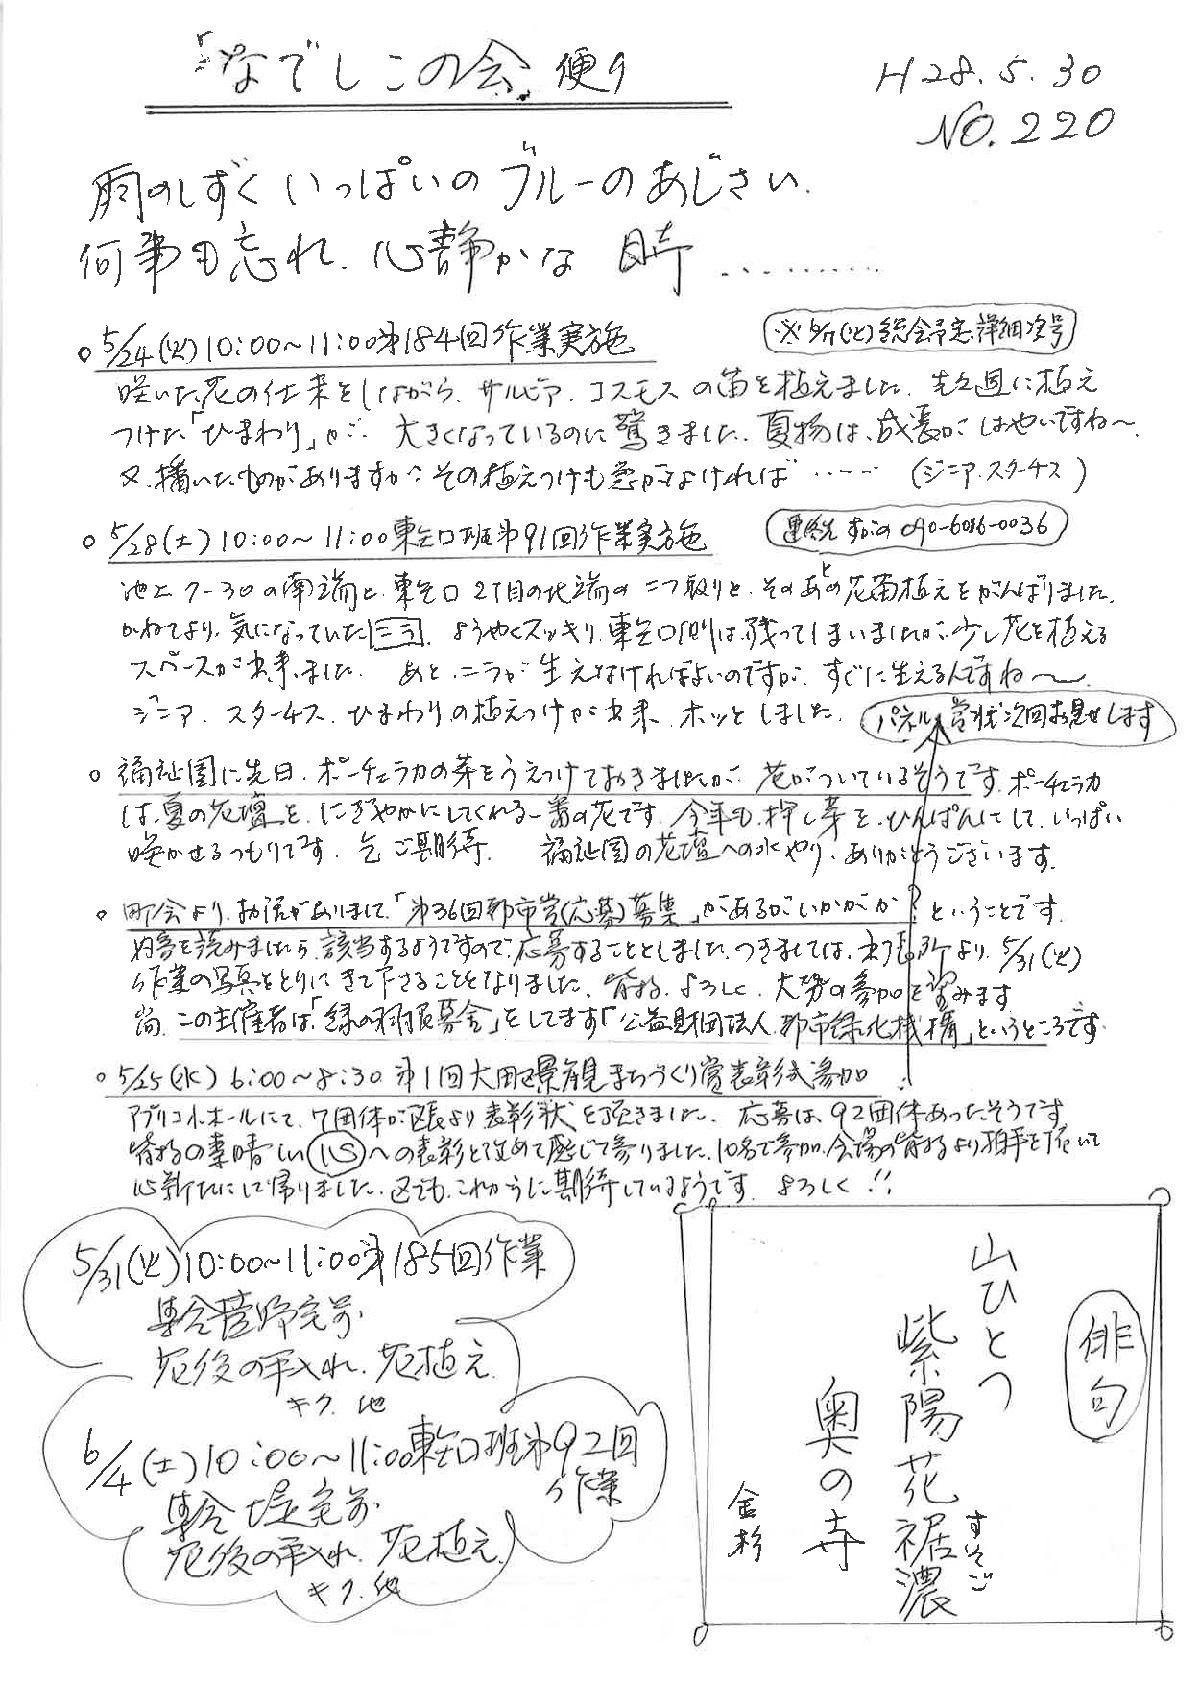 「なでしこの会」便り
H28.5.30
NO.220
雨のしずくいっぱいのブルーのあじさい.
何事も忘れ.心静かな時………
○5/24(火)10:00〜11:00第184回作業実施
※ (火)総会予定詳細次号
咲いた花の仕末をしながら.サルビア.コスモスの苗を植えました.先週に植え
つけた「ひまわり」が.大きくなっているのに驚きました.夏物は.成長がはやいですね〜.
又.播いたものがありますが.その植えつけも急がなければ‥‥‥(ジニア.スターチス)
○5/28(土)10:00〜11:00東矢口班第91回作業実施
連絡先 すがの 090-6016-0036
池上7-30の南端と.東矢口2丁目の北端の 取りと.そのあと花苗植えをがんばりました.
かねてより.気になっていたニラ.ようやくスッキリ.東矢口側は残ってしまいましたが.少し花を植える
スペースが出来ました.あと.ニラが生えなければよいのですが.すぐに生えるんですね〜.
ジニア.スターチス.ひまわりの植えつけが出来.ホッとしました.
パネル.賞状次回お見せします
○福祉園に先日.ポーチュラカの芽をうえつけておきましたが.花がついているそうです.ポーチュラカ
は.夏の花壇を.にぎやかにしてくれる一番の花です.今年も.挿し芽を.ひんぱんにして.いっぱい
咲かせるつもりです.乞ご期待.福祉園の花壇への水やり.ありがとうございます.
○町会より.お話がありまして.「第36回都市賞(応募)募集」があるがいかがか?ということです.
内容を読みましたら.該当するようですので.応募することとしました.つきましては. より.5/31(火)
作業の写真をとりにきて下さることとなりました.皆様.よろしく.大勢の参加を望みます
尚.この主催者は.「緑の羽根募金」をしてます「公益財団法人.都市緑化機構」というところです.
○5/25(水)6:00〜8:30.第1回大田区景観まちづくり賞表彰式参加
アプリコホールにて.7団体が区長より表彰状を頂きました.応募は.92団体あったそうです.
皆様の素晴しい心への表彰と改めて感じて参りました.10名で参加.会場の皆様より拍手を頂いて
心新たにして帰りました.区でも.これからに期待しているようです.よろしく!!
5/31(火)10:00〜11:00第185回作業
集合菅野宅前
花後の手入れ.花植え.
キク.他
6/4(土)10:00〜11:00東矢口班第92回
作業
集合 堤宅前
花後の手入れ.花植え.
キク.他
俳句
山ひとつ
紫陽花裾濃
すそご
奥の寺
金杉